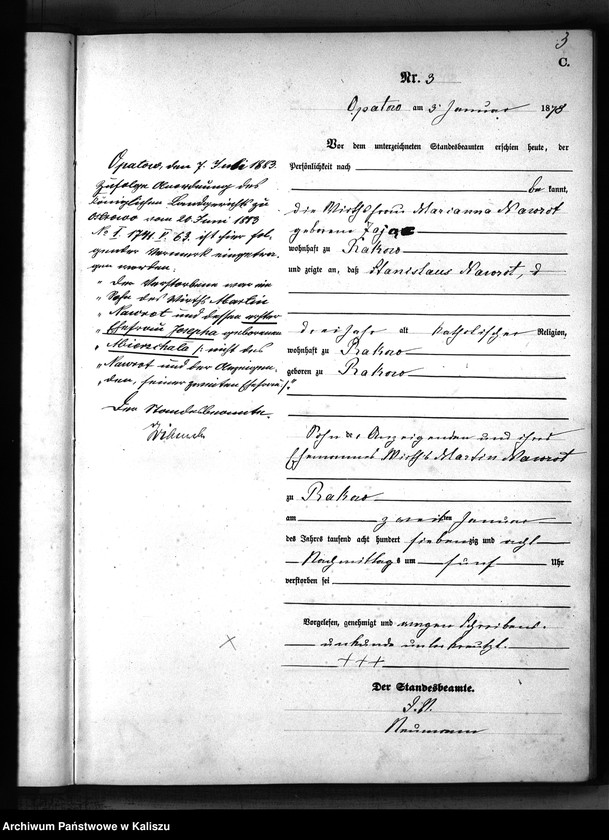 3
C.
Nr. 3
Opatow am 3 Januar 1878
Vor dem unterzeichneten Standesbeamten erschien heute, der
Persönlichkeit nach
bekannt,
die Wirthsfrau Marianna Nawrot
geborene Zając
wohnhaft zu Rakow
und zeigte an, daß Stanislaus Nawrot,
drei Jahr alt katholischer Religion,
wohnhaft zu Rakow
geboren zu Rakow
Sohn der Anzeigenden und ihres
Ehemannes Wirth Martin Nawrot
zu Rakow
am zweiten Januar
des Jahres tausend acht hundert siebenzig und acht
Nachmittags um fünf Uhr
verstorben sei
Vorgelesen, genehmigt und wegen Schreibens-
unkunde unterkreuzt.
+++
Der Standesbeamte.
J.V.
Neumann
Opatow, den 7. Juli 1883.
Zufolge Anordnung des
königlichen Landgerichts zu
Ostrowo vom 20 Juni 1883
No I. 1741 63. ist hier fol-
gender Vermerk eingetra-
gen worden:
„Der Verstorbene war ein
„Sohn des Wirths Martin
„Nawrot und dessen erster
„Ehefrau Josepha geborenen
„Mierzchala /: nicht des
„Nawrot und der Anzeigen-
„den, seiner zweiten Ehefrau :/."
Der Standesbeamte.
Archiwum Państwowe w Kaliszu